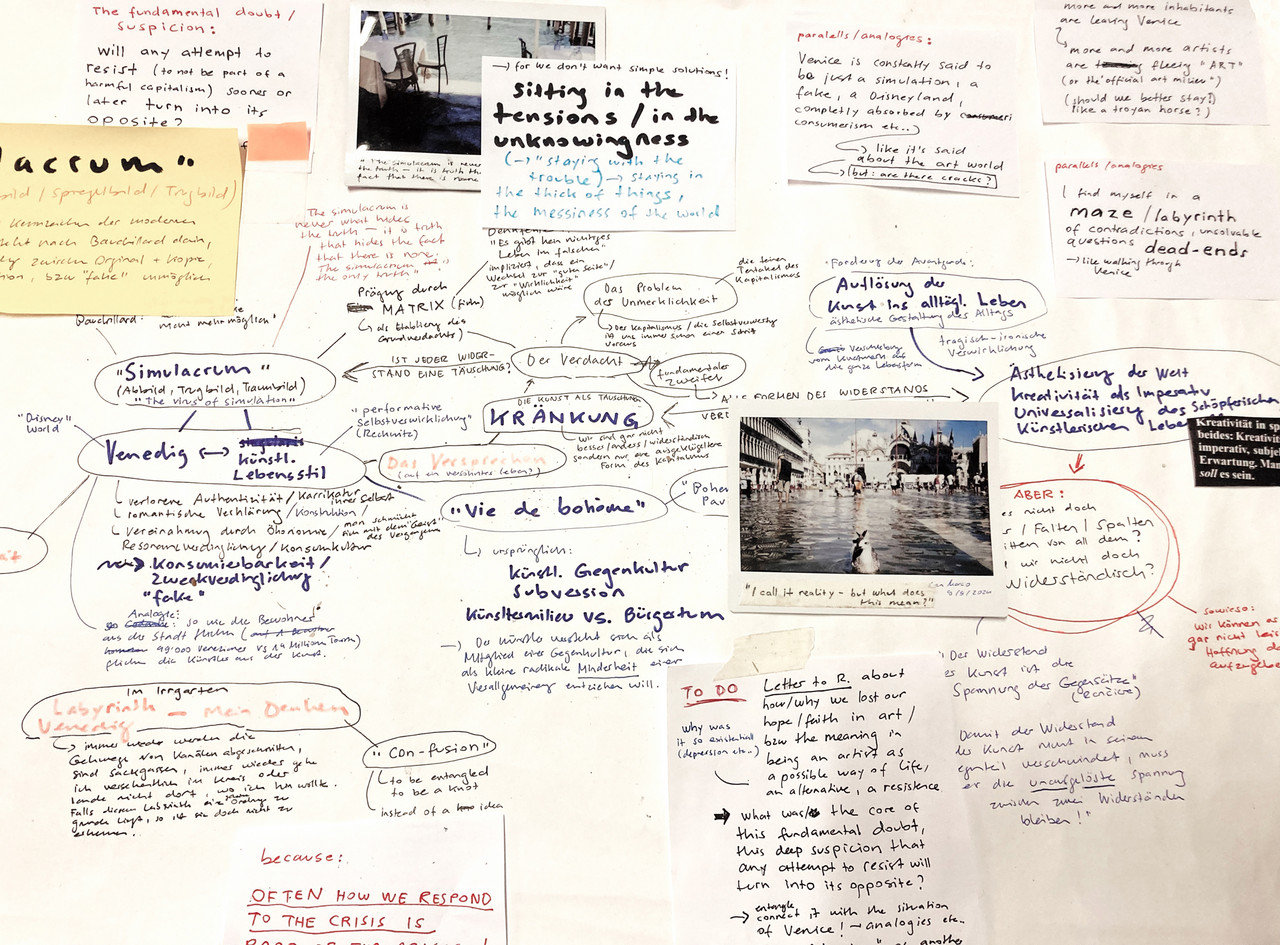 The fundamental doubt /
suspicion:
Will any attempt to
resist (to not be part of a
harmful capitalism) sooner or
later turn into its
opposite?
lacrum"
bild / Spiegelbild / Trugbild)
Kennzeichen der modernen
nach Bauchillard darin,
zwischen Orginal + Kopie,
bzw "fake" unmöglich.
Bauchillard:
nicht mehr möglich"
"The simulacrum is never
the truth — it is truth th
fact that there is none
→ for we don't want simple solutions!
Sitting in the
tensions / in the
unknowingness
(→ "staying with the
trouble) → staying in
the thick of things,
the messiness of the world
parallels / analogies:
Venice is constantly said to
be just a simulation, a
fake, a Disneyland,
completly absorbed by
consumerism etc..)
like it's said
about the art world
(but: are there cracks?
more and more inhabitants
are leaving Venice
more and more artists
are fleeing "ART"
(or the "official art milieu")
(should we better stay?)
like a troyan horse?)
parallels / analogies
I find myself in a
maze / labyrinth
of contradictions, unsolvable
questions dead-ends
→ like walking through
Venice
The simulacrum is
never what hides
the truth — it is truth
that hides the fact
that there is none.
The simulacrum is
the only truth"
"Es gibt kein richtiges
Leben im falschen"
impliziert, dass ein
Wechsel zur "guten Seite" /
zur "Wirklichkeit"
möglich wäre
Prägung durch
MATRIX (Film)
als Etablierung des
Grundverdachts)
Das Problem
des Unmerklichkeit
die feinen
Tentakel des
Kapitalismus
Der Kapitalismus / die Selbstverwertg
ist uns immer schon einen Schritt
voraus
Forderung der Avantgarde:
Auflösung der
Kunst ins alltägl. Leben
ästhetische Gestaltung des Alltags
Verschiebung
vom Kunstwerk auf
die ganze Lebensform
tragisch-ironische
Verwirklichung
Ästhetisierung der Welt
Kreativität als Imperativ
Universalisierung des Schöpferischen
Künstlerischen Lebe
Kreativität in sp
beides: Kreativi
imperativ, subje
Erwartung. Man
soll es sein.
"Simulacrum"
(Abbild, Trugbild, Traumbild)
"The virus of simulation"
IST JEDER WIDER-
STAND EINE TÄUSCHUNG?
Der Verdacht
fundamentaler
Zweifel
ALLE FORMEN DES WIDERSTANDS
DIE KUNST ALS TÄUSCHUNG
KRÄNKUNG
wir sind gar nicht
besser/anders/widerständisch
sondern nur eine ausgeklügeltere
Form des Kapitalismus
"Disney"
World
Venedig ↔
künstl.
Lebensstil
"performative
Selbstverwirklichung"
(Reckwitz)
Das Versprechen
(auf ein versöhntes Leben?)
"Vie de bohème"
verlorene Authentizität / Karrikatur
ihrer Selbst
romantische Verklärung / Konstruktion /
Vereinnahmung durch Ökonomie /
man schmückt
sich mit dem "Geist"
des Vergangenen
Resonanzverdinglichung / Konsumkultur
Konsumierbarkeit /
Zweckverdinglichung
"fake"
Analogie:
so wie die Bewohner
aus der Stadt fliehen
49'000 Venezianer vs 14 Millionen Touris)
fliehen die Künstler aus der Kunst.
ursprünglich:
künstl. Gegenkultur
Subversion
Künstlermilieu vs. Bürgertum
→ Der Künstler versteht sich als
Mitglied einer Gegenkultur, die sich
als kleine radikale Minderheit einer
Verallgemeinerg entziehen will.
"I call it reality - but what does
this mean?"
San Marco
ABER:
es nicht doch
/ Falten / Spalten
itten von all dem?
wir nicht doch
Widerständisch?
sowieso:
wir können es
gar nicht leis
Hoffnung
aufzugebe
"Der Widerstand
der Kunst ist die
Spannung des Gegensätze"
(Rancière)
Damit der Widerstand
der Kunst nicht in seinem
Gegenteil verschwindet, muss
er die unaufgelöste Spannung
zwischen zwei Widerständen
bleiben!"
Im Irrgarten
Labyrinth — Mein Denken
Venedig
immer wieder werden die
Gehwege von Kanälen abgeschnitten,
sind Sackgassen, immer wieder gehe
ich versehentlich im Kreis oder
lande nicht dort, wo ich hin wollte.
Falls diesem Labyrinth eine Ordnung zu
grunde liegt, so ist sie doch nicht zu
erkennen.
"Con-fusion"
to be entangled
to be a knot
instead of a idea
because:
OFTEN HOW WE RESPOND
TO THE CRISIS IS
TO DO
why was
it so existential
(depression etc..)
Letter to R. about
how/why we lost our
hope/faith in art /
bzw the meaning in
being an artist as
a possible way of life,
an alternative, a resistence
what was/is the core of
this fundamental doubt,
this deep suspicion that
any attempt to resist will
turn into its opposite?
entangle
→ connect it with the situation
of Venice! → analogies etc..
another